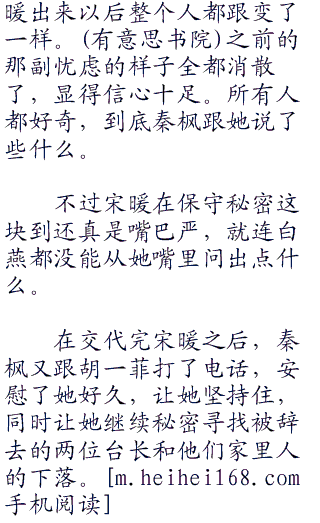 暖出来以后整个人都跟变了
一样。(有意思书院)之前的
那副忧虑的样子全都消散
了，显得信心十足。所有人
都好奇，到底秦枫跟她说了
些什么。
不过宋暖在保守秘密这
块到还真是嘴巴严，就连白
燕都没能从她嘴里问出点什
么。
在交代完宋暖之后，秦
枫又跟胡一菲打了电话，安
慰了她好久，让她坚持住，
同时让她继续秘密寻找被辞
去的两位台长和他们家里人
的下落。[m.heihei168.com
手机阅读]